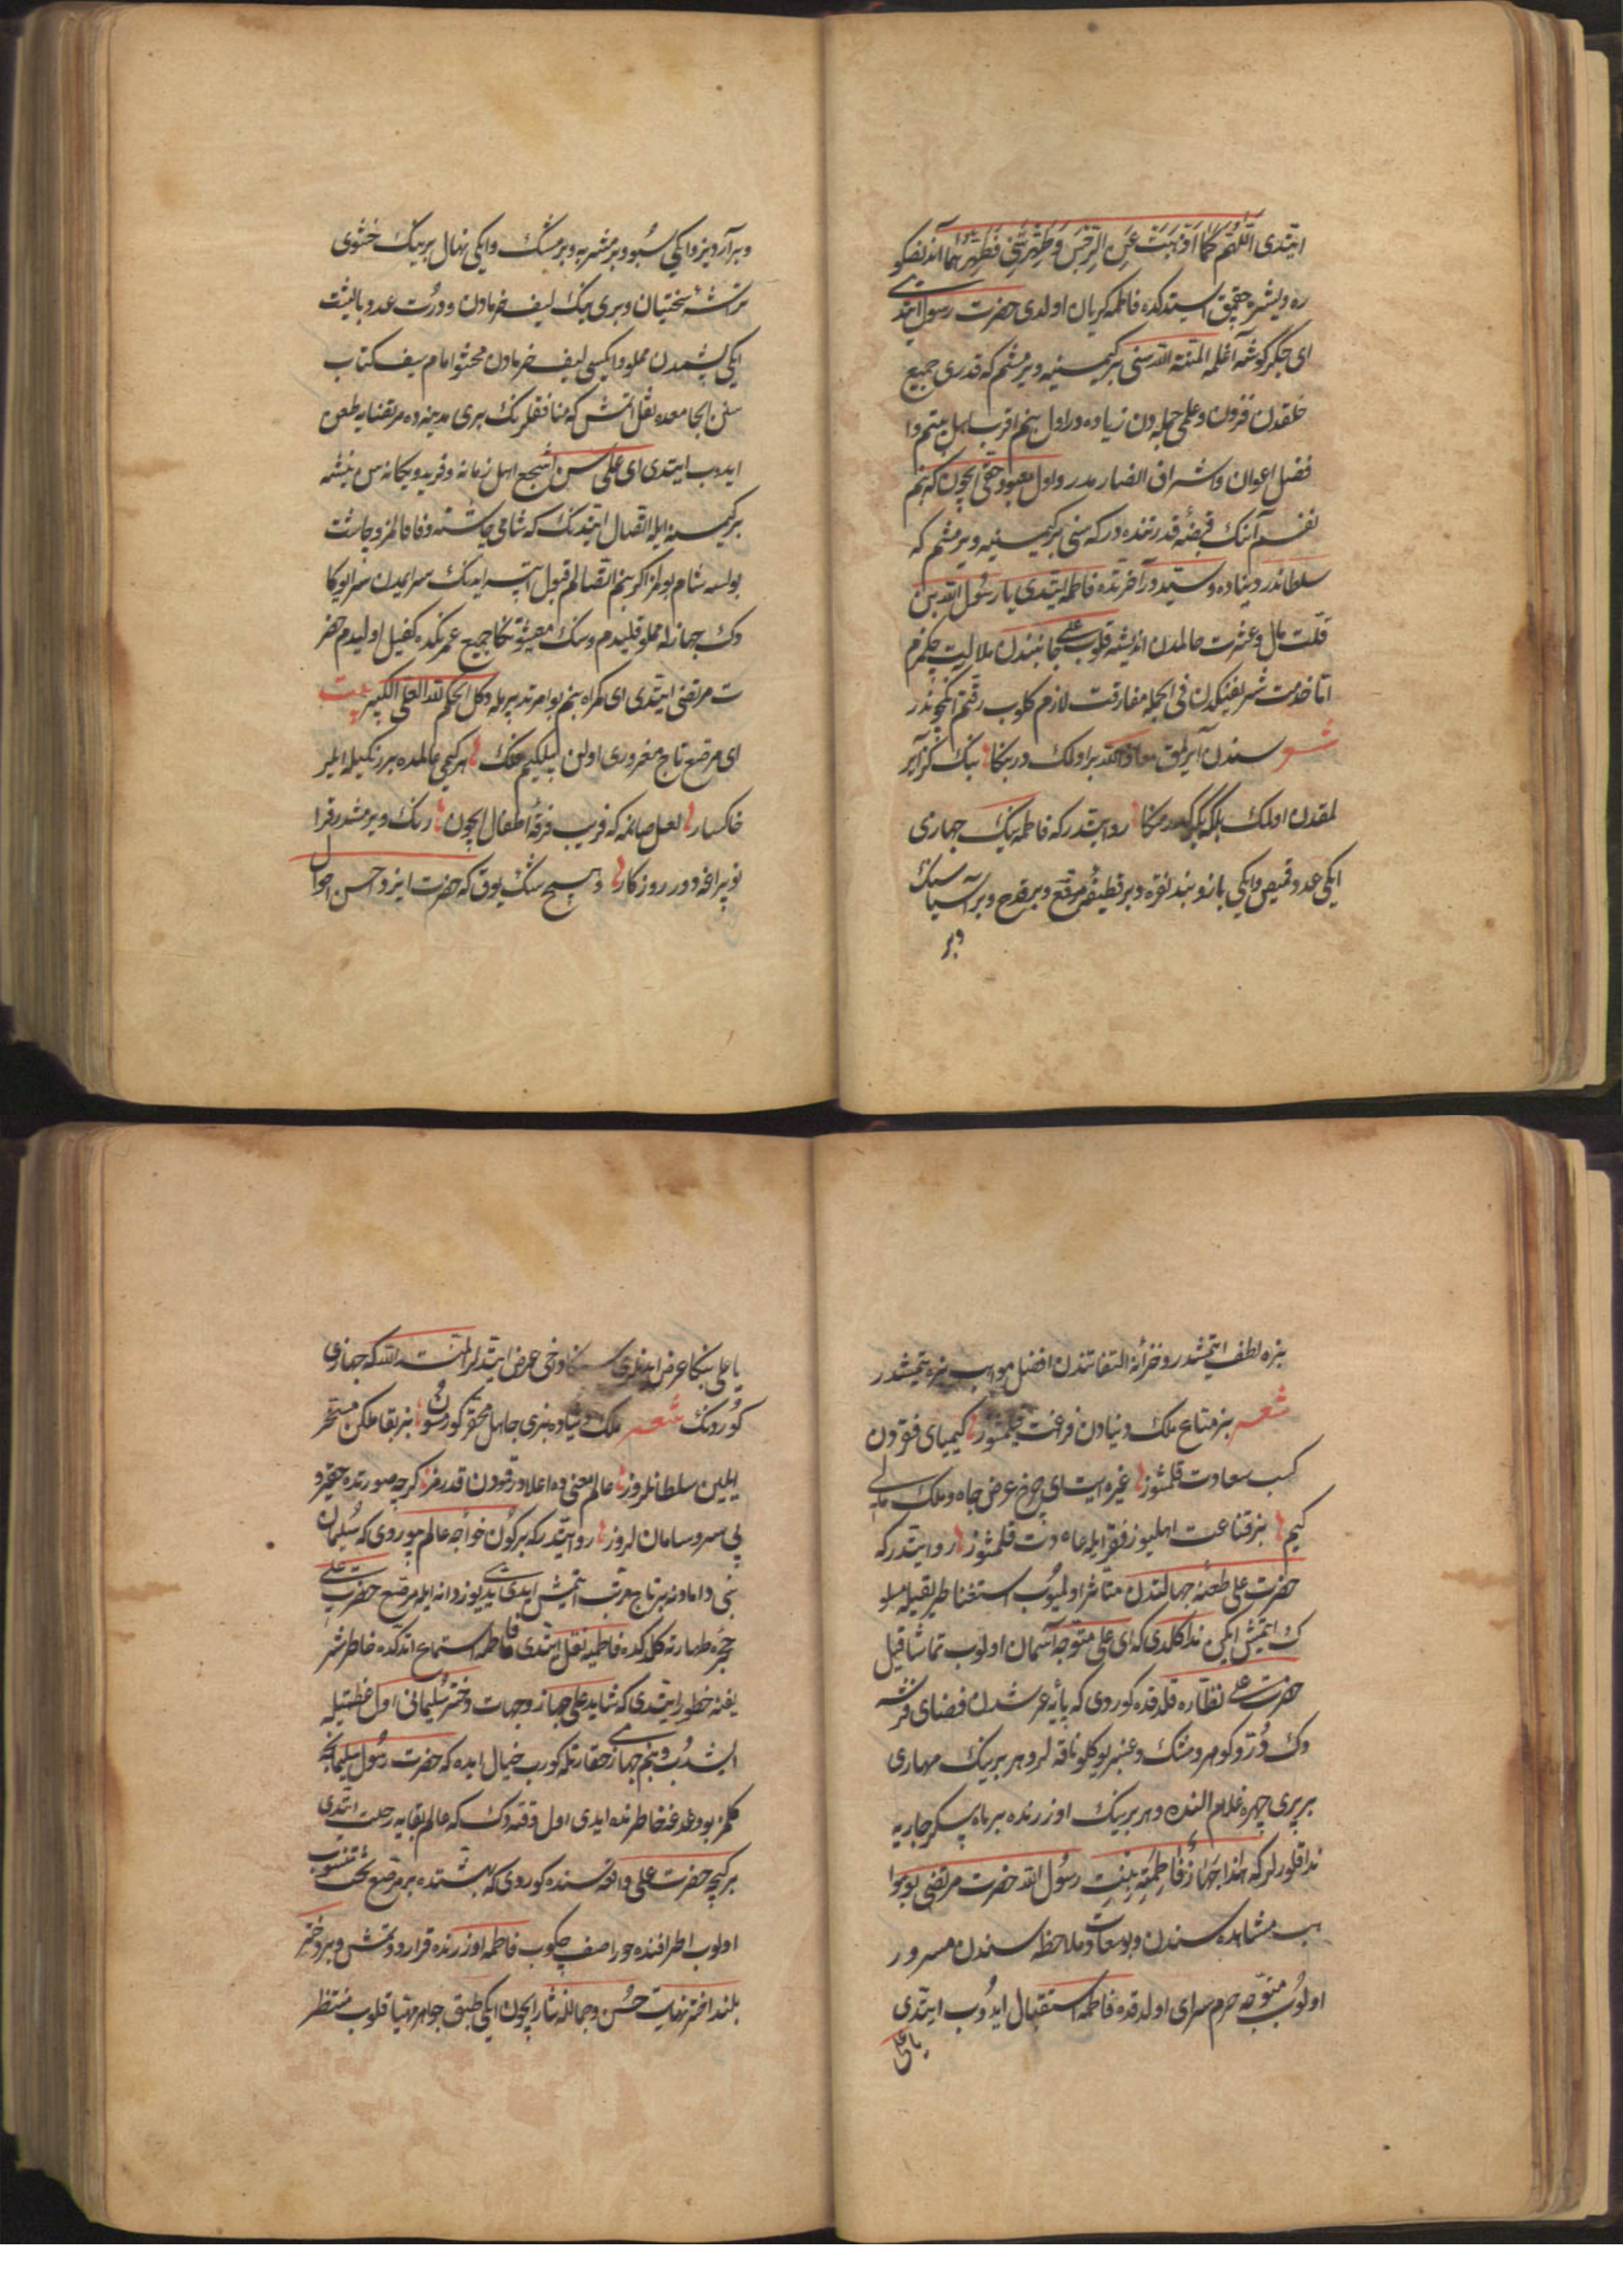 ایتدی اَللّهُمَّ كَمَا اَذْهَبْتَ عَنِ الرِّجْسَ وَطَهِّرْتَنِي فَطَهِّرْهُمَا آندنصكو
ره ویشره چقمق استدكده فاطمه كریان اولدی حضرت رسول ایتدی
ای جگرگوشه آغلمه المنة لله سنی بركیمسنیه ویرمشم كه قدری جمیع
خلقدن فزون وعلمی جمله دن زیاده در اول بنم اقرب اهل بیتم وا
فضل اعوان واشراف انصارمدر واول معبود حقی ایچون كه بنم
نفسم آنك قبضۀ قدرتنده در كه سنی بركیمسنیه ویرمشم كه
سلطاندر دنیاده وسیّددر آخرتده فاطمه ایتدی یا رسول الله بن
قلت مال وعسرت حالمدن اندیشه قلوب علی جانبندن ملالیت چكمزم
امّا خدمت شریفیكدن فی الجمله مفارقت لازم كلوب رقّتم انكچوندر
شعر سندن آیرلمق معاذالله بر اولمك در بكا بنك گز آیر
لمقدن اولمك بلكه یگدر بكا روایتدر كه فاطمه نیك جهازی
ایكی عدد قمیص وایكی بازوبند نقره وبر قطیفۀ مرقع وبر قدح وبر آسیا سنك
وبر
وبر آردیز وایكی سبو وبر مشربه وبر مشك وایكی نهال برینك خشوی
تراشۀ سختیان وبری نیك لیف خرمادن ودورت عدد بالشت
ایكی پشمدن مملو وایكیسی لیف خرمادن محشو امام سیف كتاب
سنن الجامعده نقل اتمش كه منافقلرنك بری مدینه ده مرتضایه طعن
ایدوب ایتدی ای علی سن اشجع اهل زمانه وفرید ویكانه سن نیشه
بركیمسنه ایله اتصال ایتدنك كه شامی چاشتنه وفا قالمز وچاشت
بولسه شام بولمز اكر بنم اتصالم قبول ایتسه ایدنك سرایمدن سرایوكا
دك جهازله مملو قلیدم وسنك معیشوكا جمیع عمرنكده كفیل اولیدم حضر
ت مرتضی ایتدی ای كمراه بنم بو امر تدبیریله دكل الحكم لله العلی الكبیر بیت
ای مرصع تاج مغروری اولن بیلكیم فلك هر كیمی عالمده بر رنكیله ایلر
خاكسار لعل صانمه كه فریب فرقۀ اطفال ایچون رنك ویرمشدر قرا
طوپراغه دور روزكار وهیچ شك یوق كه حضرت ایزد احسن احوال
بزه لطف ایتمشدر وخزانۀ التفاتندن افضل مواهب بزه یتمشدر
شعر بز متاع ملك دنیادن فراغت قیلمشوز كیمیای فقردن
كسب سعادت قلمشوز غیره ایت ای چرخ عرض جاه وملك مالی
كیم بز قناعت اهلیوز فقر ایله عادت قلمشوز روایتدر كه
حضرت علی طعنۀ جهالتدن متاثر اولمیوب استغنا طریقیله سلو
ك ایتمش ایكن ندا كلدی كه ای علی متوجه آسمان اولوب تماشا قیل
حضرت علی نظاره قلدقده كوردی كه پایۀ عرشدن فضای فرشه
دك درّ وكوهر ومشك وعنبر یوكلو ناقه لر وهر برینك مهاری
بر پری چهره غلام النده وهر برینك اوزرنده بر ماه پیكر جاریه
ندا قلورلر كه هٰذا جَهَازُ فَاطِمَةِ بِنْتِ رسُول الله حضرت مرتضی بو موا
هب مشاهده سندن وبو سعادت ملاحظه سندن مسرور
اولوب متوجه حرم سرای اولدقده فاطمه استقبال ایدوب ایتدی
یا علی
یا علی بنكا عرض ایدندی سنكا دخی عرض ایتدیلر المنة لله كه جهازی
كوردنك شعر ملك دنیاده بزی جاهل محقر كورمسون بز بقا ملكن مسخر
ایلین سلطانلروز عالم معنی ده اعلادر قودن قدرمز كرچه صورتده حقیر و
بی سر وسامان لروز روایتدر كه بر كون خواجۀ عالم بیوردی كه سلیمان
نبی دامادنه بر تاج مرتب ایتمش ایدی یدی یوز دانه ایله مرصع حضرت علی
حجرۀ طهارته كلدكده فاطمیه نقل ایتدی فاطمه استماع اتدكده خاطر شر
یفنه خطور ایتدی كه شاید علی جهاز وجهات دختر سلیمانی اول عظمتیله
ایشدوب وبنم جهازمی حقارتله كورب خیال ایده كه حضرت رسول سلیمانجه
كلمز بو دغدغه خاطرنده ایدی اول وقته دك كه عالم بقایه رحلت ایتدی
بر كیجه حضرت علی واقعه سنده كوردی كه بهشتده بر مرصع تخت منصوب
اولوب اطرافنده حورا صف چكوب فاطمه اوزرنده قرار دوتمش وبر دختر
بلند اختر نهایت حسن وجمالله نثار ایچون ایكی طبق جواهر مهیا قلوب منتظر